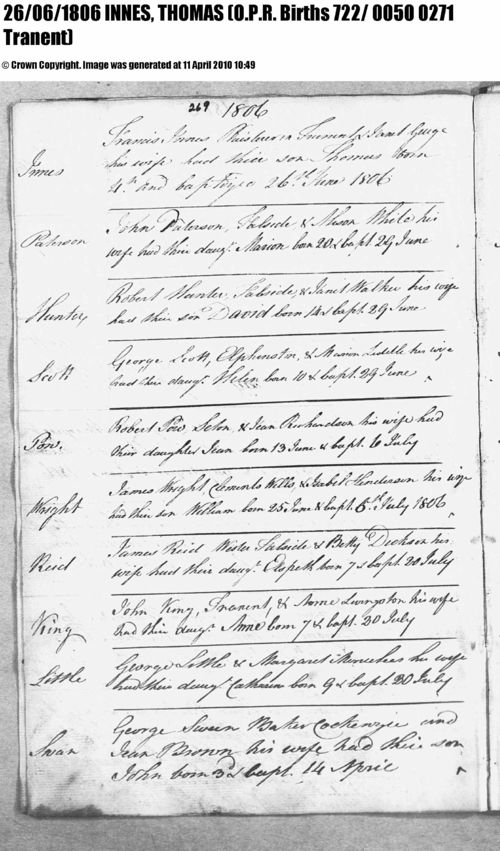 26/06/1806 INNES, THOMAS (O.P.R. Births 722/ 0050 0271
Tranent)
© Crown Copyright. Image was generated at 11 April 2010 10:49
269 1806
Innes
Francis Innes in Tranent & Janet
his wife had their son Thomas born
4th and baptized 26th June 1806
Paterson
John Paterson, Falside & Alison White his
wife had their daugr. Marion born 20 & bapt. 29 June
Hunter
Robert Hunter, Falside, & Janet Walker his wife
had their son David born 14 & bapt. 29 June
Scott
George Scott, Elphinston, & Marion his wife
had their daugr. Helen born 10 & bapt. 29 June
Pow.
Robert Pow, Seton, & Jean Richardson his wife had
their daughter Jean born 13 June & bapt. 6 July
Wright
James Wright, Clements Wells, & Isabel Henderson his wife
had their son William born 25 June & bapt. 6th July 1806
Reid
James Reid Wester Falside & Betty Dickson his
wife had their daugr. Elspeth born 7 & bapt. 20 July
King
John King, Tranent, & Anne Livingston his wife
had their daugr. Anne born 7 & bapt. 20 July
Little
George Little & Margaret his wife
had their daugr. Catharine born 9 & bapt. 20 July
Swan
George Swan Baker Cockenzie and
Jean Brown his wife had their son
John born 3d & bapt. 14 April